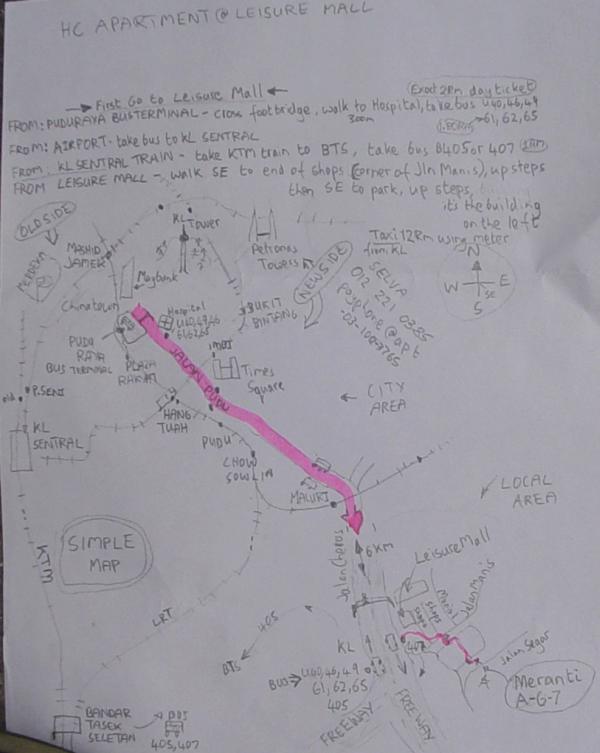 HC APARTMENT @ LEISURE MALL
→ First Go to Leisure Mall ←
Exact 2Rm day ticket
FROM: PUDURAYA BUSTERMINAL - cross footbridge, walk to Hospital, take bus U40,46,49
300m
→61,62,65
FROM: AIRPORT - take bus to KL SENTRAL
FROM: KL SENTRAL TRAIN - take KTM train to BTS, take bus U405 or 407
FROM LEISURE MALL - WALK SE to end of shops (corner of Jln Manis), up steps
then SE to park, up steps,
its the building
on the left
Taxi 12Rm using meter
from KL
OLD SIDE
NEWSIDE
KL
Tower
Petronas
Towers
MASJID
JAMEK
Maybank
Chinatown
Hospital
U40,49,46
61,62,65
BUKIT
BINTANG
SELVA
N
W
E
SE
S
PUDU
RAYA
BUS TERMINAL
PLAZA
RAKYAT
JALAN PUDU
IMBI
Times
Square
HANG
TUAH
PUDU
CHOW
SOW LIN
MALURI
← CITY
AREA
P.SENI
KL
SENTRAL
LOCAL
AREA
SIMPLE
MAP
KTM
LRT
Jalan Cheras
6Km
Leisure Mall
Jalan Manis
shops
Jalan Segar
405
BTS
KL
407
BUS→ U40,46,49
61,62,65
405
FREEWAY
FREEWAY
Meranti
A-6-7
BANDAR
TASEK
SELETAN
BUS
405,407